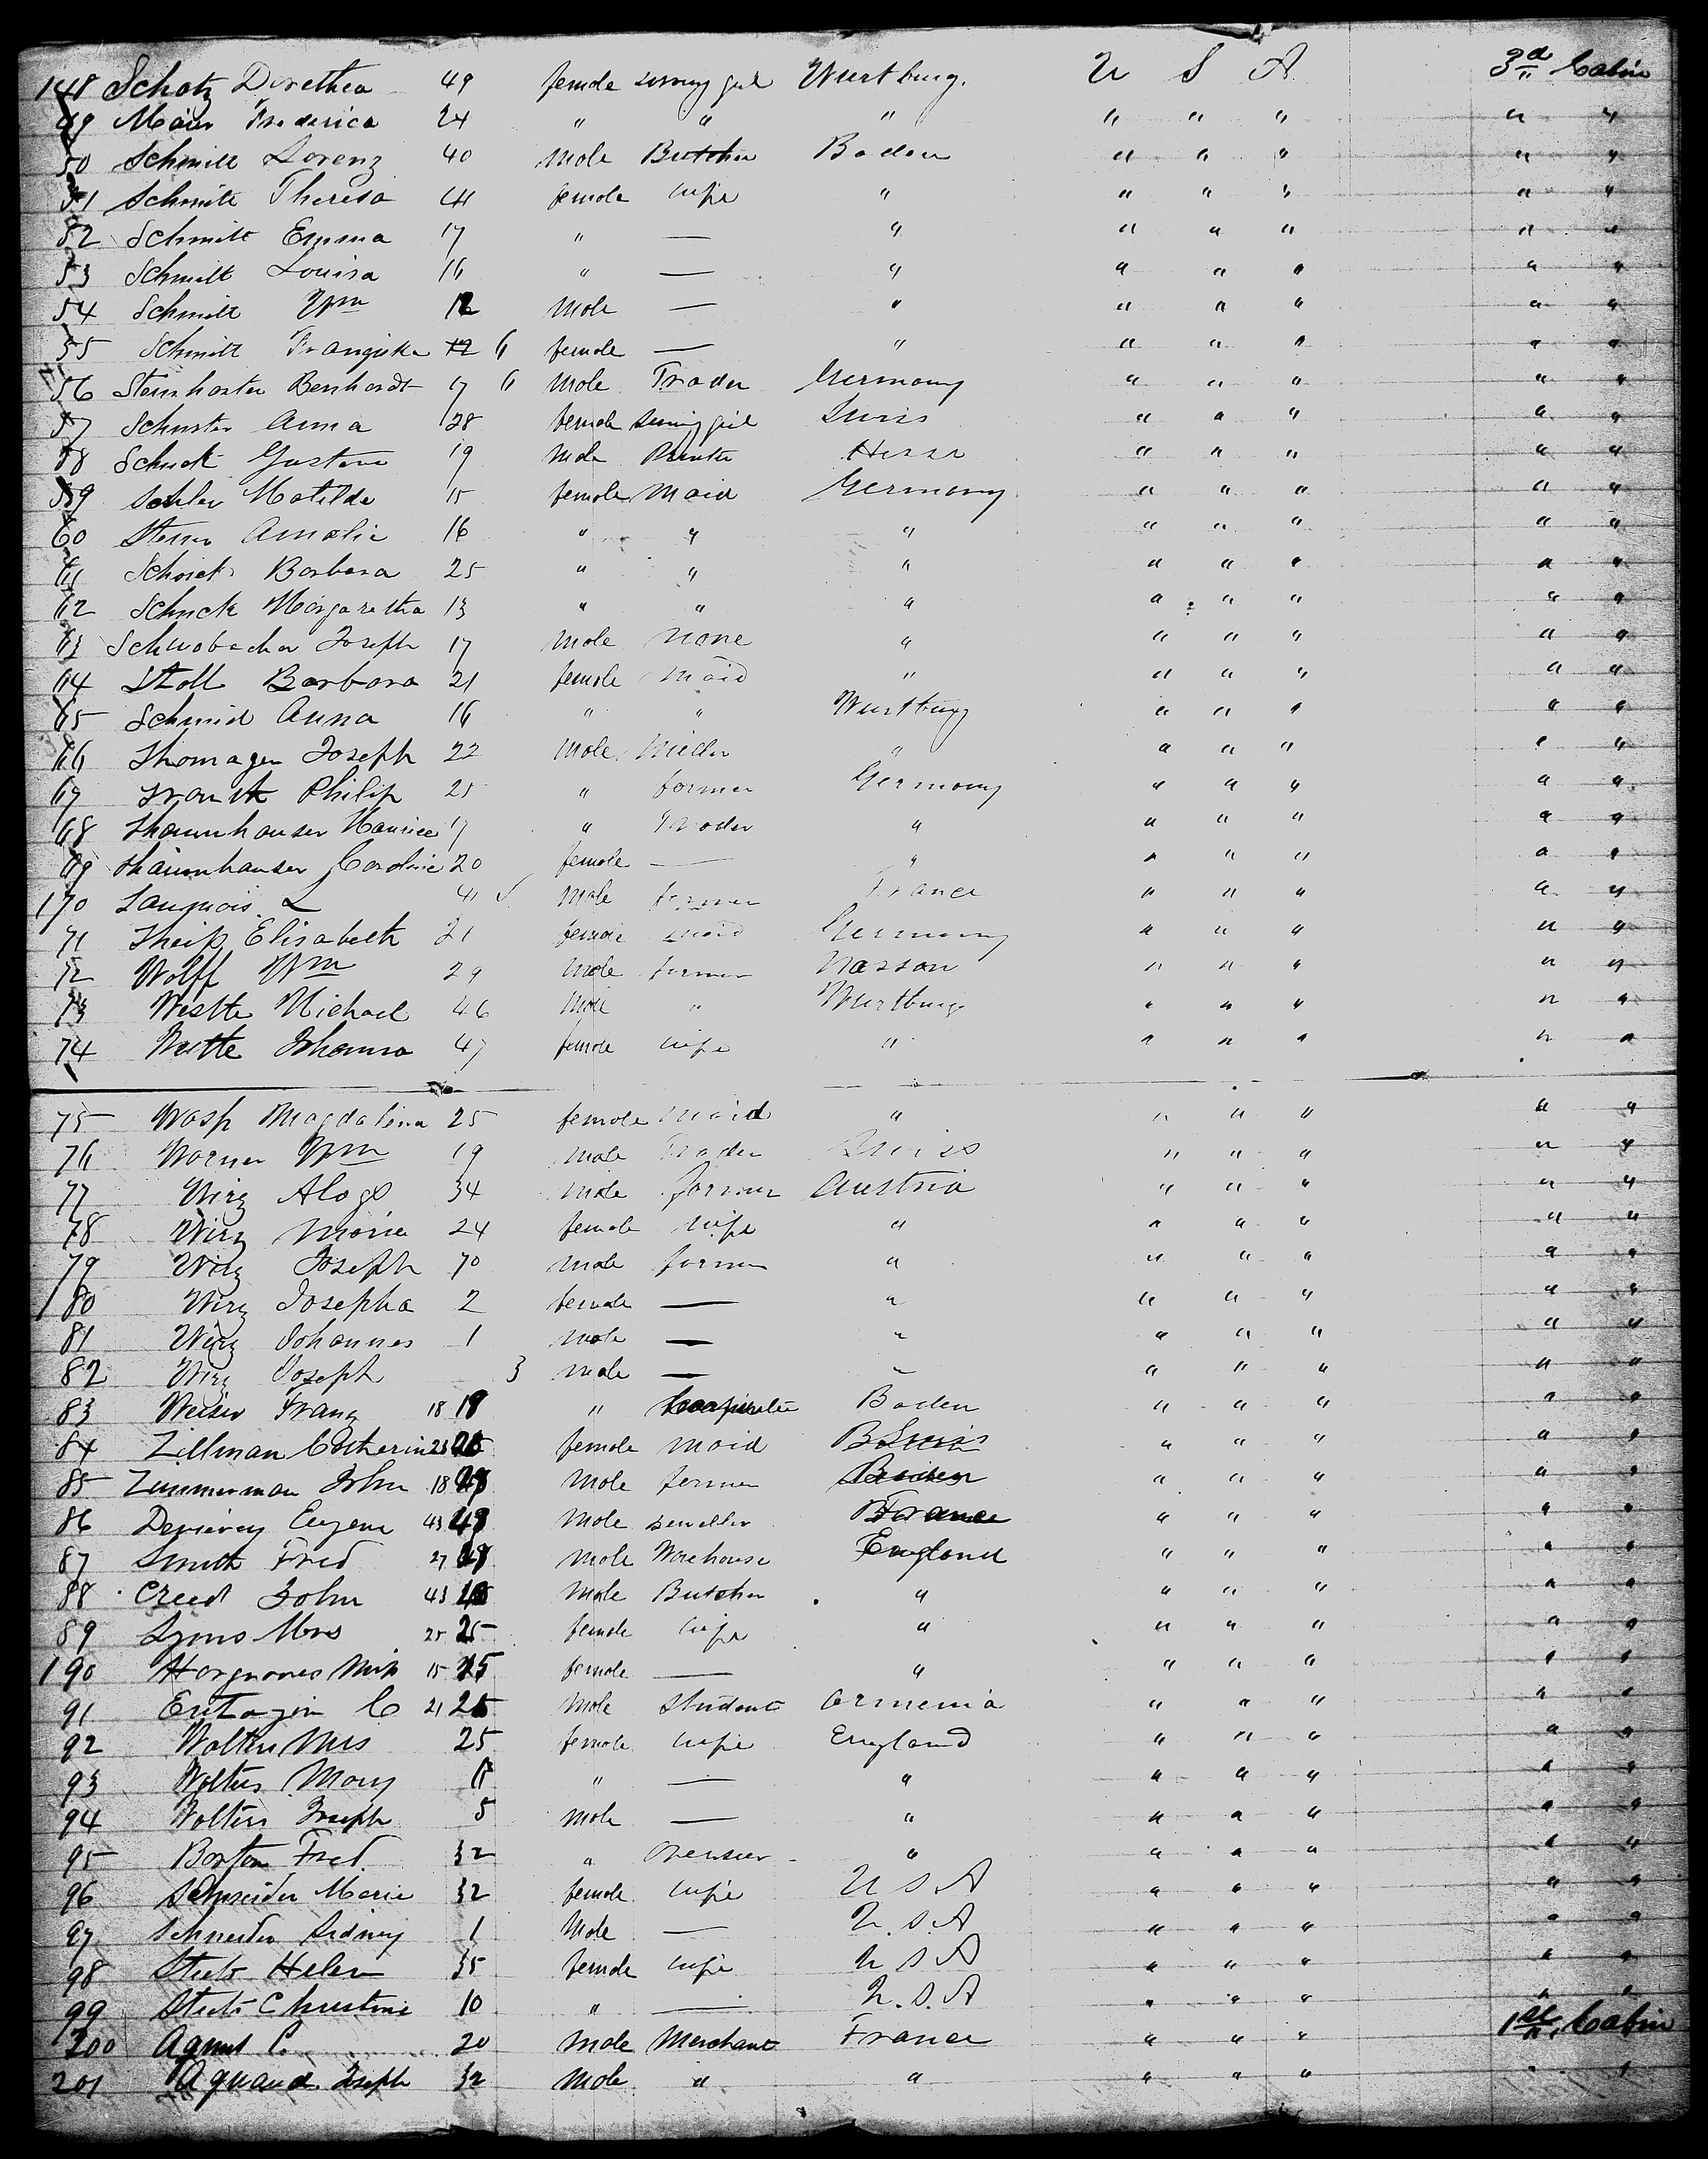 148 Schatz Dorethea 49 female serving girl Wurtburg. U S A. 3d Cabin
49 Maier Frederica 24 " " " " " " " "
50 Schmitt Lorenz 40 male Butcher Baden " " " " "
51 Schmitt Theresa 41 female wife " " " " " "
52 Schmitt Emma 17 " — " " " " " "
53 Schmitt Louisa 16 " — " " " " " "
54 Schmitt Wm 12 male — " " " " " "
55 Schmitt Franziska 12 6 female — " " " " " "
56 Steinharter Bernhardt 17 6 male Trader Germany " " " " "
57 Schuster Anna 28 female serving girl Swiss " " " " "
58 Schuck Gustave 19 male Hesse " " " " "
59 Mathilde 15 female maid Germany " " " " "
60 Amalie 16 " " " " " " " "
61 Barbara 25 " " " " " " " "
62 Schuck Margaretha 13 " " " " " " " "
63 Schwabacher Joseph 17 male none " " " " " "
64 Stoll Barbara 21 female maid " " " " " "
65 Schmid Anna 16 " " Wurtburg " " " " "
66 Thomager Joseph 22 male Miller " " " " " "
67 Philip 25 " farmer Germany " " " " "
68 Thaunhauser Maurice 17 " Trader " " " " " "
69 Thaunhauser Caroline 20 female — " " " " " "
170 L 41 male farmer France " " " " "
71 Theiss Elisabeth 21 female maid Germany " " " " "
72 Wolff Wm 29 male farmer Nassau " " " " "
73 Michael 46 male " Wurtburg " " " " "
74 Johanna 47 female wife " " " " " "
75 Wasp Magdalena 25 female maid " " " " " "
76 Worner Wm 19 male Trader Swiss " " " " "
77 Wirz Aloys 34 male farmer Austria " " " " "
78 Wirz Maria 24 female wife " " " " " "
79 Wirz Joseph 70 male farmer " " " " " "
180 Wirz Josepha 2 female — " " " " " "
81 Wirz Johannes 1 male — " " " " " "
82 Wirz Joseph 3 male — " " " " " "
83 Weiser Franz 18 18 " Baden " " " " "
84 Zillman Catherine 23 female maid Swiss " " " " "
85 Zimmerman John 18 male farmer " " " " "
86 Eugene 43 male Jeweller France " " " " "
87 Smith Fred 27 male Warehouse England " " " " "
88 Creed John 43 male Butcher " " " " " "
89 Lyons Mrs 25 25 female wife " " " " " "
190 Hargraves Miss 15 15 female — " " " " " "
91 C 21 male Student Armenia " " " " "
92 Walters Mrs 25 female wife England " " " " "
93 Walters Mary " — " " " " " "
94 Walters Joseph 5 male — " " " " " "
95 Barton Fred 32 " Overseer " " " " " "
96 Schneider Marie 32 female wife U S A " " " " "
97 Schneider Sidney 1 male — U. S. A " " " " "
98 Steets Helen 35 female wife U S A " " " " "
99 Steets Christine 10 " — U. S. A " " " " "
200 C. 20 male Merchant France " " " 1st Cabin
201 Joseph 32 male " " " " " " "